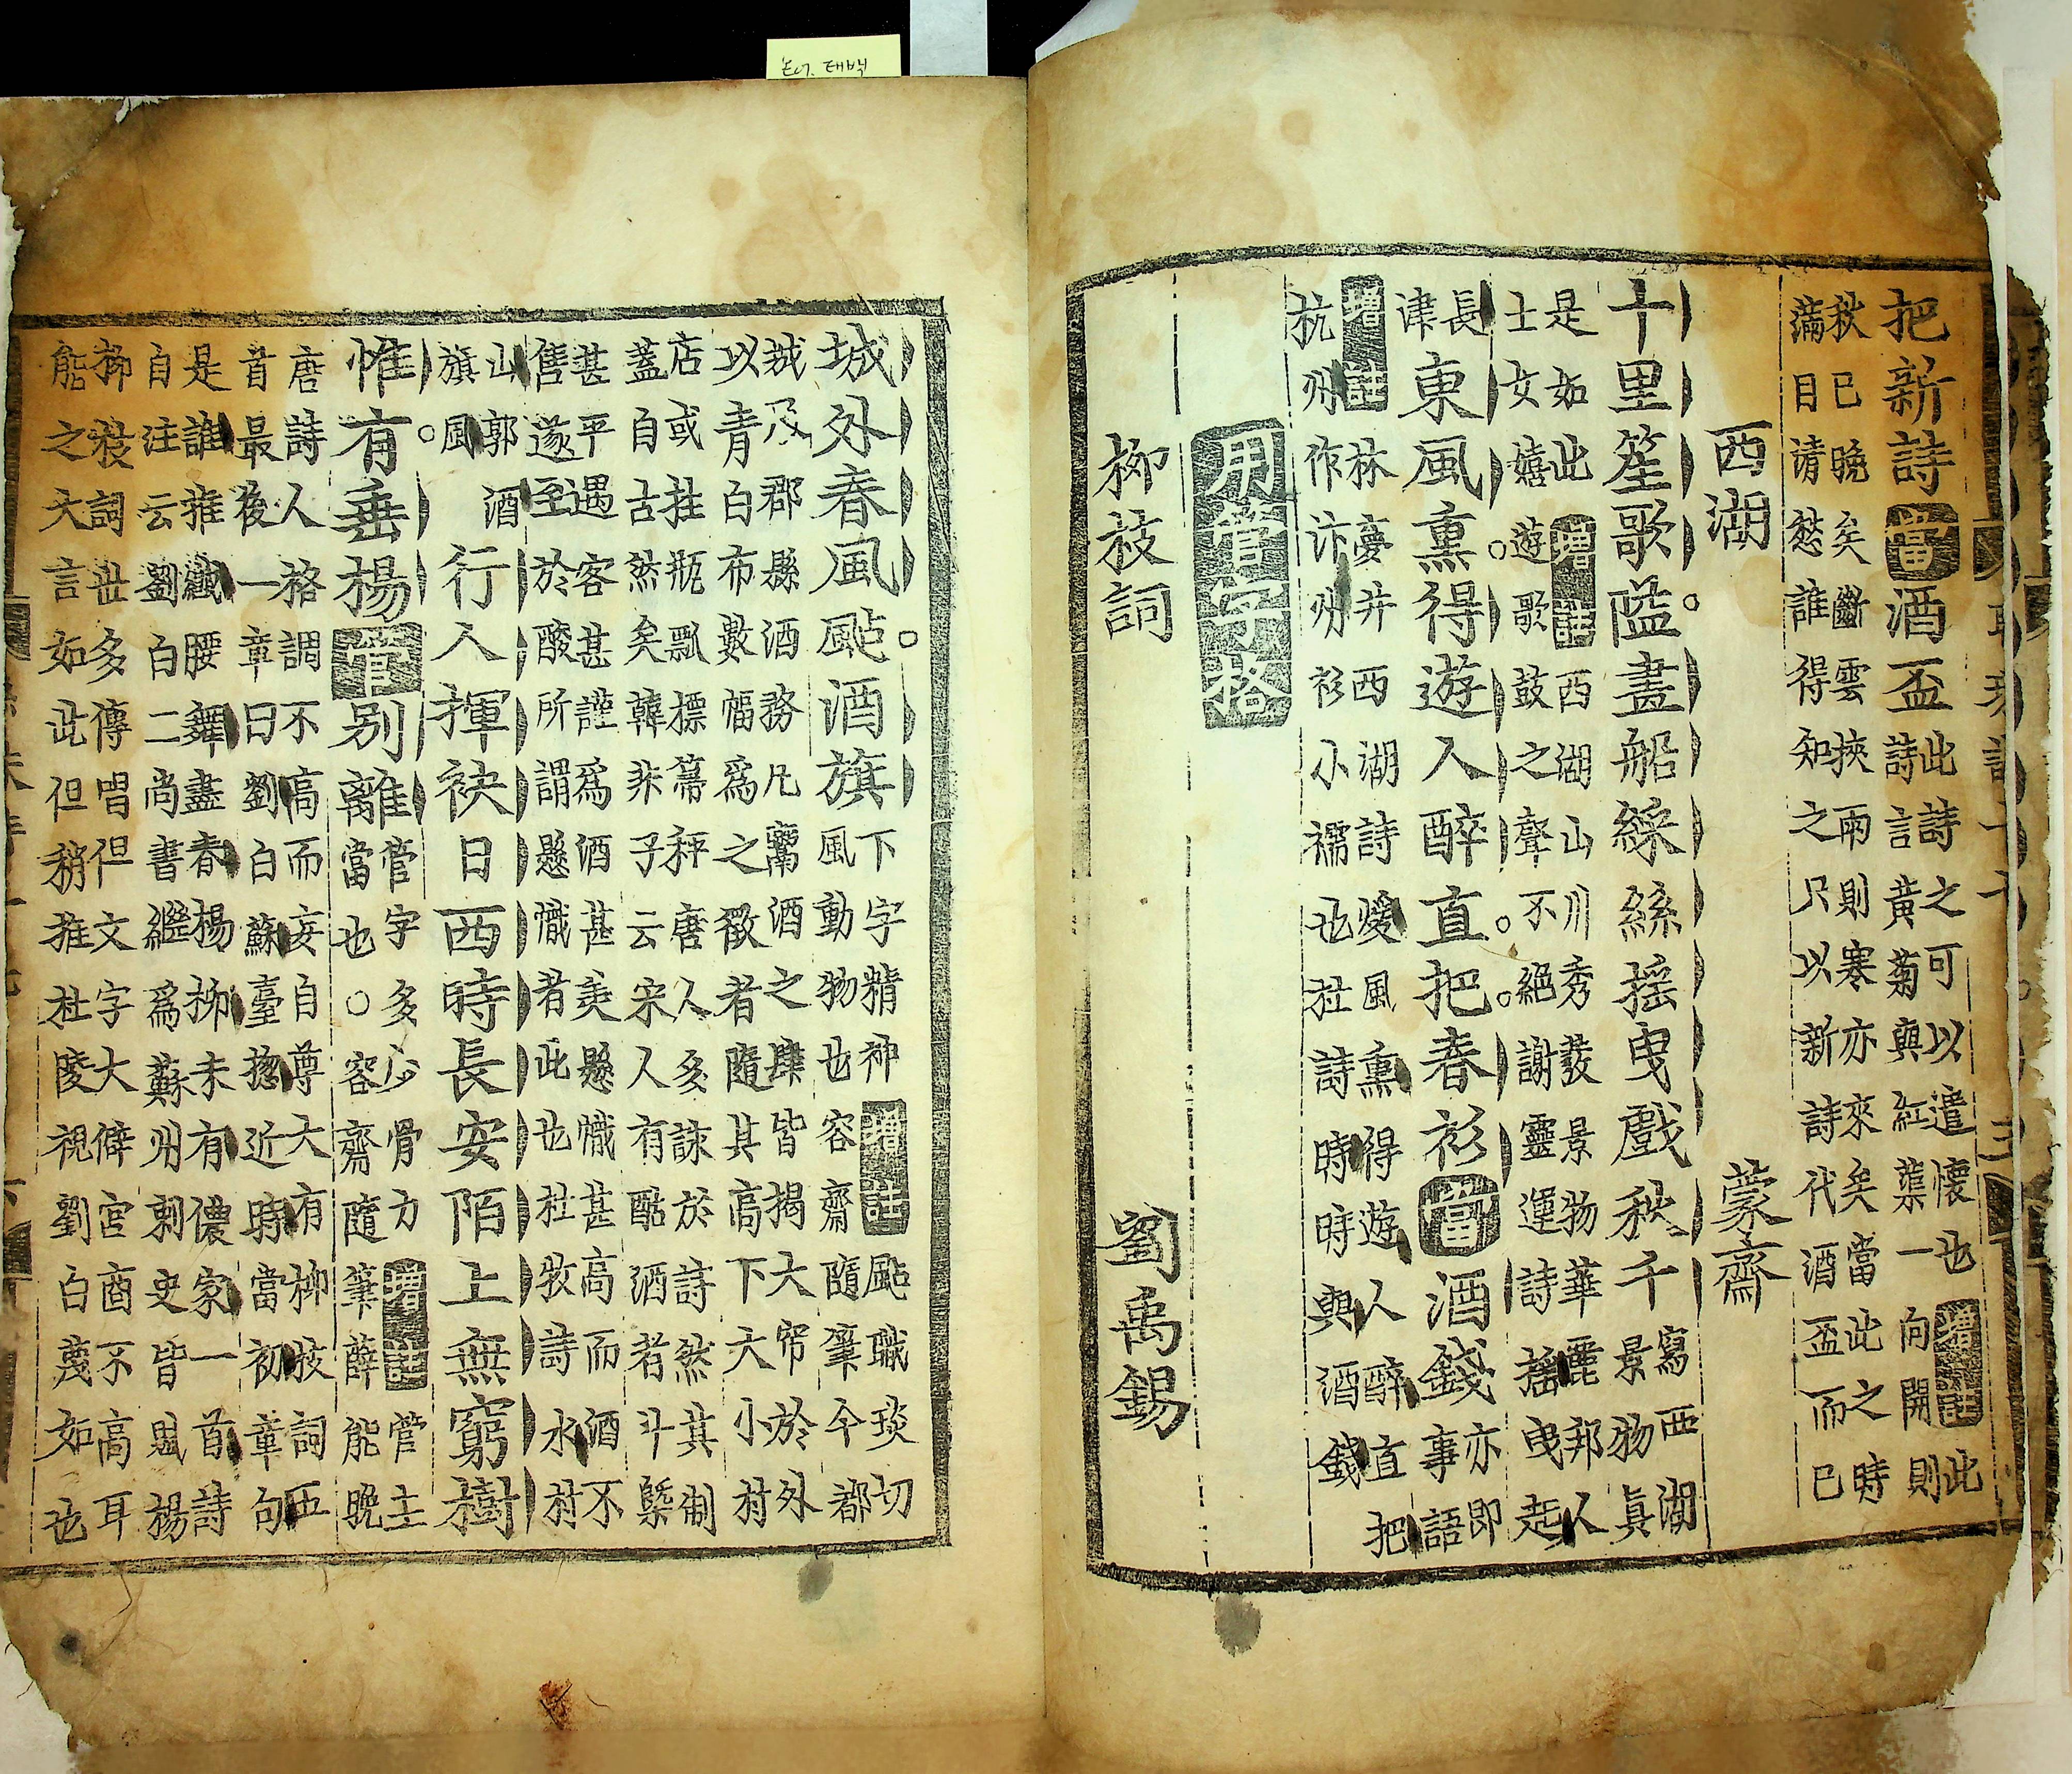 把新詩當酒盃此詩之可以遣懷也增註此
詩言黃菊與紅蕖一向開則
秋已晩矣斷雲挾雨則寒亦來矣當此之時
滿目清愁誰得知之只以新詩代酒盃而已
西湖 蒙齋
十里笙歌隘畫船綵絲揺曳戲秋千寫西湖
景物眞
是如此增註西湖山川秀發景物華麗邦人
士女嬉遊歌鼓之聲不絕謝靈運詩揺曳起
長
津東風熏得遊人醉直把春衫當酒錢亦即
事語
增註林夢井西湖詩煖風熏得遊人醉直把
杭州作汴州衫小襦也杜詩時時與酒錢
用管字格
柳枝詞 劉禹錫
城外春風颭酒旗下字精神增註颭職琰切
風動物也容齋隨筆今都
城及郡縣酒務凡鬻酒之肆皆揭大帘於外
以青白布數幅爲之徵者隨其高下大小村
店或挂瓶瓢標箒秤唐人多詠於詩然其制
蓋自古然矣韓非子云宋人有酤酒者斗槩
甚平遇客甚謹爲酒甚美懸幟甚高而酒不
售遂至於酸所謂懸幟者此也杜牧詩水村
山郭酒
旗風行人揮袂日西時長安陌上無窮樹
惟有垂楊管别離管字多少骨力增註管主
當也○容齋隨筆薛能晩
唐詩人格調不高而妄自尊大有柳枝詞五
首最後一章曰劉白蘇臺揔近時當初章句
是誰推纖腰舞盡春楊柳未有儂家一首詩
自注云劉白二尚書繼爲蘇州刺史皆賦楊
柳枝詞世多傳唱但文字大僻宮商不高耳
能之大言如此但稍推杜陵視劉白蔑如也